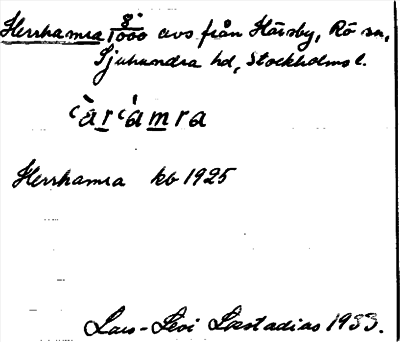 Herrhamra 8°/1000 avs från Härsby, Rö sn,
Sjuhundra hd, Stockholms l.
ʽàrʽàmra
Herrhamra kb 1925
Lars-Levi Læstadius 1933.